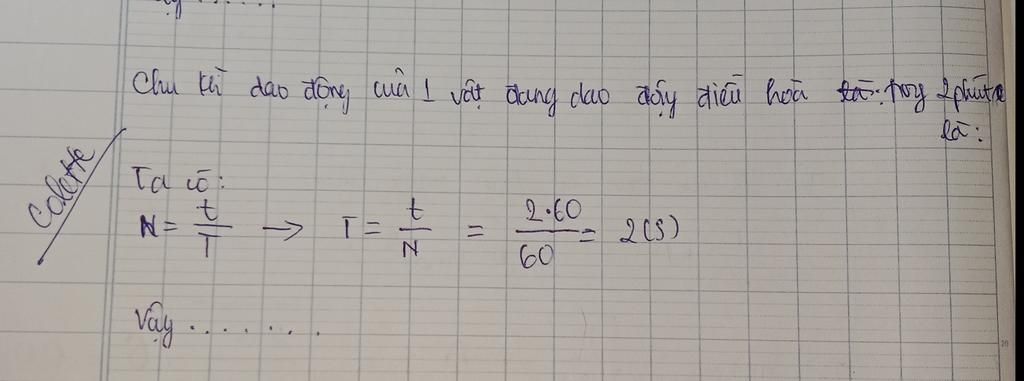 Chu kì dao động của 1 vật đang dao động điều hoà là: trong 2 phút
là:
Colette
Ta có:
N = t/T → T = t/N = 2.60/60 = 2(s)
Vậy . . . . . . .